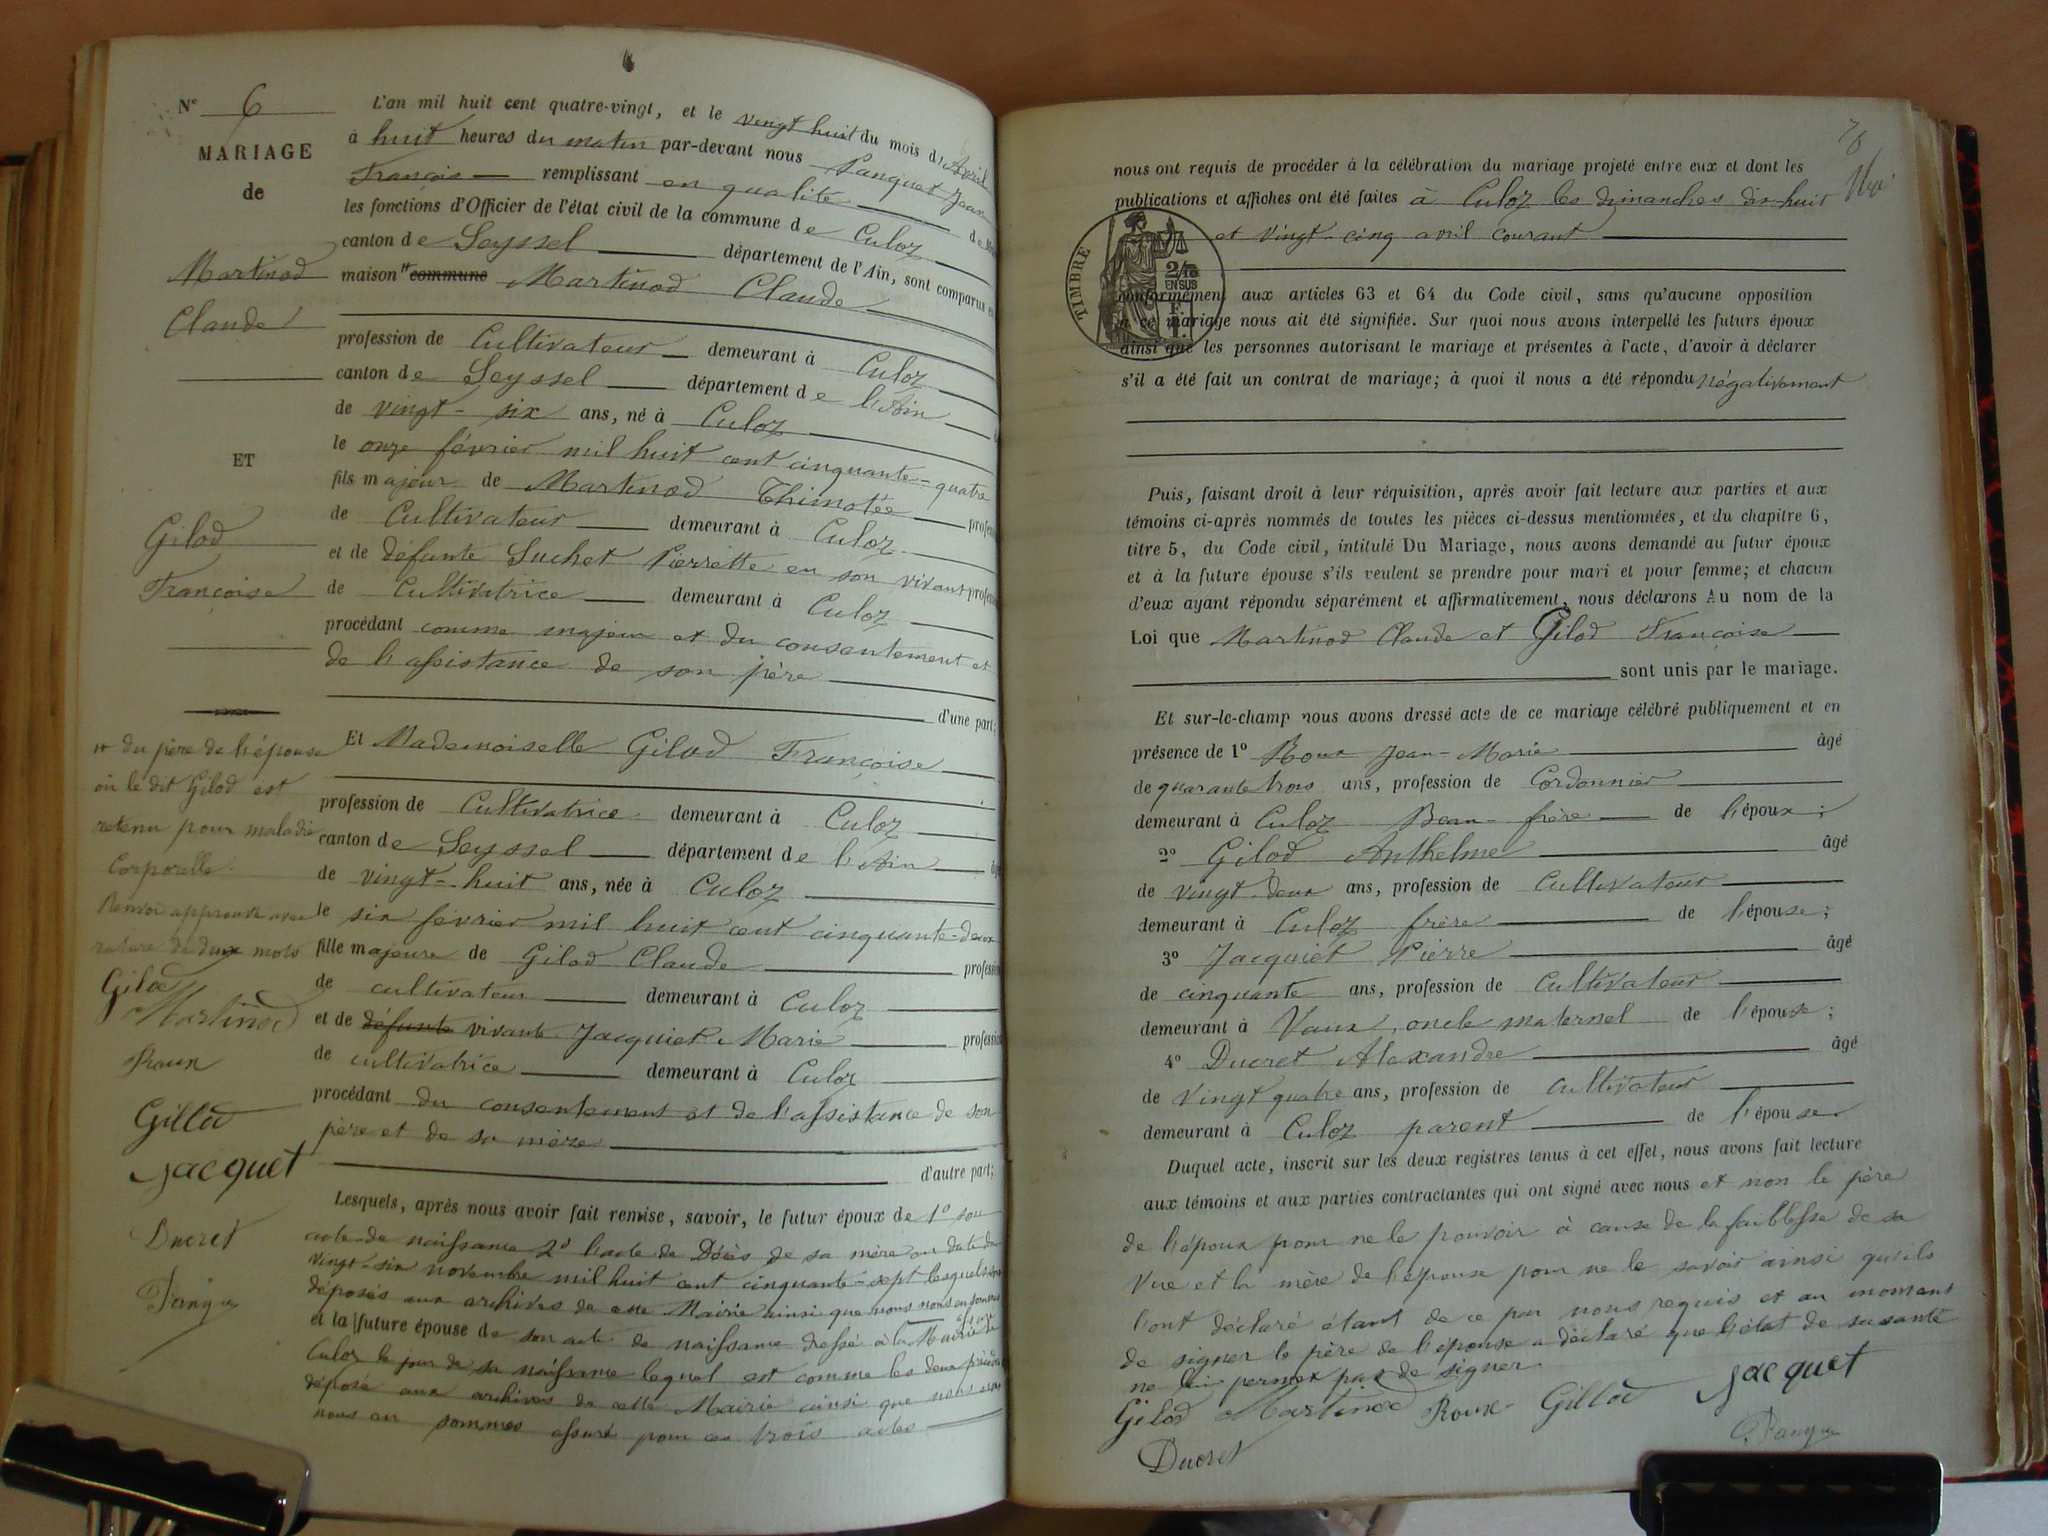 Nº 6
MARIAGE
de
Martinod
Claude
ET
Gilod
Françoise
du père de l'épouse
où le dit Gilod est
retenu pour maladie
Corporelle.
Renvoi approuvé avec
rature de deux mots
Gilod
Martinod
Roux
Gillod
Jacquet
Ducret
L'an mil huit cent quatre-vingt, et le vingt huit du mois d'Avril
à huit heures du matin par-devant nous Janguet Jean
François remplissant en qualité de
les fonctions d'Officier de l'état civil de la commune de Culoz
canton de Seyssel département de l'Ain, sont comparus en
maison commune Martinod Claude
profession de Cultivateur demeurant à Culoz
canton de Seyssel département de l'Ain
de vingt-six ans, né à Culoz
le onze février mil huit cent cinquante-quatre
fils majeur de Martinod Thimotée
de Cultivateur demeurant à Culoz
et de défunte Suchet Pierrette en son vivant
de Cultivatrice demeurant à Culoz
procédant comme majeur et du consentement et
de l'assistance de son père
d'une part;
Et Mademoiselle Gilod Françoise
profession de Cultivatrice demeurant à Culoz
canton de Seyssel département de l'Ain
de vingt-huit ans, née à Culoz
le six février mil huit cent cinquante-deux
fille majeure de Gilod Claude profession
de cultivateur demeurant à Culoz
et de défunte vivante Jacquiet Marie profession
de cultivatrice demeurant à Culoz
procédant du consentement et de l'assistance de son
père et de sa mère
d'autre part;
Lesquels, après nous avoir fait remise, savoir, le futur époux de 1º son
acte de naissance 2º l'acte de Décès de sa mère en date du
vingt-six novembre mil huit cent cinquante-sept lesquels
déposés aux archives de cette Mairie ainsi que nous nous en sommes
et la future épouse de son acte de naissance dressé à la Mairie de
Culoz le jour de sa naissance lequel est comme les deux
déposé aux archives de cette Mairie ainsi que nous
nous en sommes assuré pour ces trois actes
nous ont requis de procéder à la célébration du mariage projeté entre eux et dont les
publications et affiches ont été faites à Culoz les dimanches dix-huit
et vingt-cinq avril courant
TIMBRE
2/10
EN SUS
conformément aux articles 63 et 64 du Code civil, sans qu'aucune opposition
à ce mariage nous ait été signifiée. Sur quoi nous avons interpellé les futurs époux
ainsi que les personnes autorisant le mariage et présentes à l'acte, d'avoir à déclarer
s'il a été fait un contrat de mariage; à quoi il nous a été répondu négativement
Puis, faisant droit à leur réquisition, après avoir fait lecture aux parties et aux
témoins ci-après nommés de toutes les pièces ci-dessus mentionnées, et du chapitre 6,
titre 5, du Code civil, intitulé Du Mariage, nous avons demandé au futur époux
et à la future épouse s'ils veulent se prendre pour mari et pour femme; et chacun
d'eux ayant répondu séparément et affirmativement, nous déclarons Au nom de la
Loi que Martinod Claude et Gilod Françoise
sont unis par le mariage.
Et sur-le-champ nous avons dressé acte de ce mariage célébré publiquement et en
présence de 1º Roux Jean-Marie âgé
de quarante trois ans, profession de Cordonnier
demeurant à Culoz Beau-frère de l'époux;
2º Gilod Anthelme âgé
de vingt-deux ans, profession de Cultivateur
demeurant à Culoz frère de l'épouse;
3º Jacquiet Pierre âgé
de cinquante ans, profession de Cultivateur
demeurant à Vaux, oncle maternel de l'épouse;
4º Ducret Alexandre âgé
de Vingt quatre ans, profession de cultivateur
demeurant à Culoz parent de l'épouse
Duquel acte, inscrit sur les deux registres tenus à cet effet, nous avons fait lecture
aux témoins et aux parties contractantes qui ont signé avec nous et non le père
de l'époux pour ne le pouvoir à cause de la faiblesse de sa
vue et la mère de l'épouse pour ne le savoir ainsi qu'ils
l'ont déclaré étant de ce par nous requis et au moment
de signer le père de l'épouse a déclaré que l'état de sa santé
ne lui permet pas de signer.
Gilod Martinod Roux Gillod Jacquet
Ducret